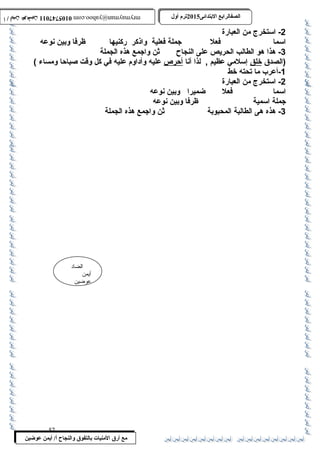 الصف الرابع الابتدائى 2015 ترم أول
mrmrayman@yahoo.com
2- استخرج من العبارة
اسما فعلا جملة فعلية واذكر ركنيها ظرفا وبين نوعه
3- هذا هو الطالب الحريص على النجاح ثن واجمع هذه الجملة
(الصدق خلق إسلامي عظيم , لذا أنا أحرص عليه وأداوم عليه في كل وقت صباحا ومساء )
1-أعرب ما تحته خط
2- استخرج من العبارة
اسما فعلا ضميرا وبين نوعه
جملة اسمية ظرفا وبين نوعه
3- هذه هى الطالبة المحبوبة ثن واجمع هذه الجملة
أيمن
عوضين
مع أرق الأمنيات بالتفوق والنجاح أ/ أيمن عوضين